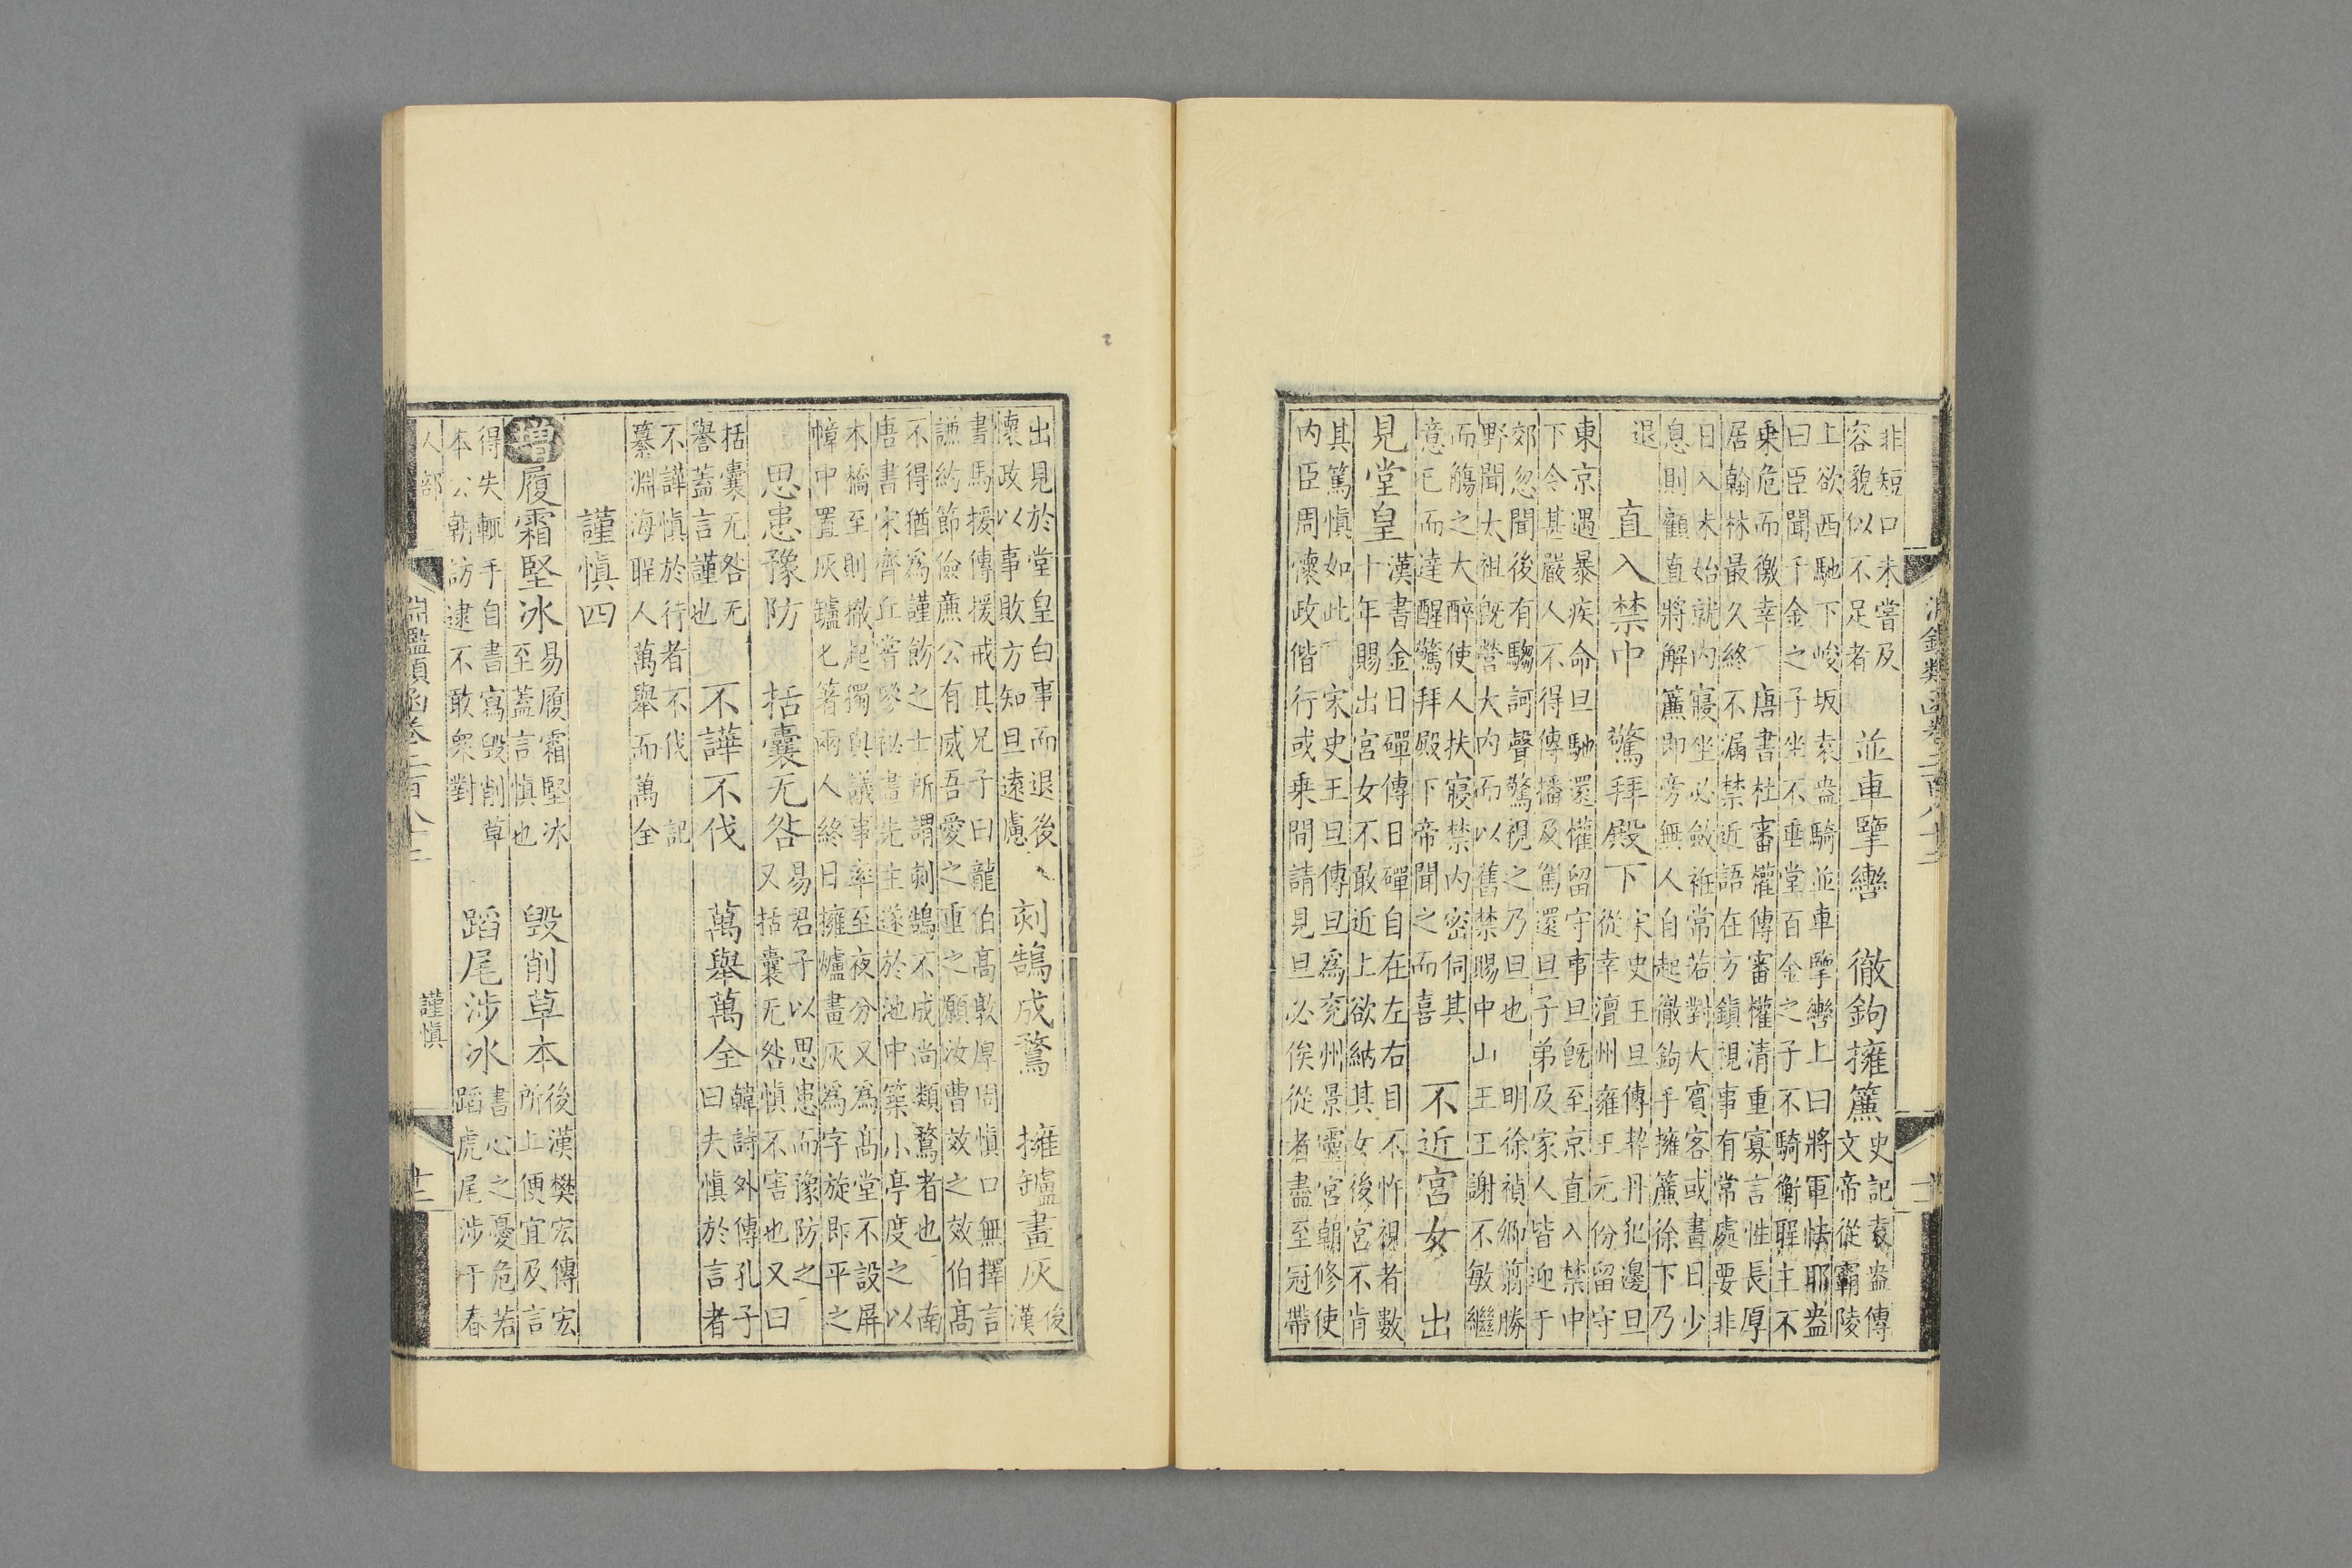 淵鑑類函卷二百八十二
非短口未嘗及
容貌似不足者
並車擥轡　徹鉤擁簾
史記袁盎傳
文帝從霸陵
上欲西馳下峻坂袁盎騎並車擥轡上曰將軍怯耶盎
曰臣聞千金之子坐不垂堂百金之子不騎衡聖主不
乗危而徼幸　唐書杜審權傳審權清重寡言性長厚
居翰林最久終不漏禁近語在方鎮視事有常處要非
日入未始就内寢坐必斂袵常若對大賓客或晝日少
息則顧直將解簾即旁無人自起徹鉤手擁簾徐下乃
退
直入禁中　驚拜殿下
宋史王旦傳契丹犯邊旦
從幸澶州雍王元份留守
東京遇暴疾命旦馳還權留守事旦旣至京直入禁中
下令甚嚴人不得傳播及駕還旦子弟及家人皆迎于
郊忽聞後有騶訶聲驚視之乃旦也　明徐禎卿翦勝
野聞太祖旣營大内而以舊禁賜中山王王謝不敏繼
而觴之大醉使人扶寢禁内密伺其
意已而達醒驚拜殿下帝聞之而喜
不近宫女　出
見堂皇
漢書金日磾傳日磾自在左右目不忤視者數
十年賜出宫女不敢近上欲納其女後宫不肯
其篤慎如此　宋史王旦傳旦爲兖州景靈宫朝修使
内臣周懷政偕行或乗間請見旦必俟從者盡至冠帶
出見於堂皇白事而退後
懷政以事敗方知旦遠慮
刻鵠成鶩　擁鑪畫灰
後
漢
書馬援傳援戒其兄子曰龍伯高敦厚周慎口無擇言
謙約節儉廉公有威吾愛之重之願汝曹效之效伯高
不得猶爲謹飭之士所謂刻鵠不成尚類鶩者也　南
唐書宋齊丘嘗參祕畫先主遂於池中築小亭度之以
木橋至則撤起獨與議事率至夜分又爲高堂不設屏
幛中置灰鑪匕著兩人終日擁爐畫灰爲字旋即平之
思患豫防　括囊无咎
易君子以思患而豫防之
又括囊无咎慎不害也又曰
括囊无咎无
譽蓋言謹也
不譁不伐　萬舉萬全
韓詩外傳孔子
曰夫慎於言者
不譁慎於行者不伐　記
纂淵海聖人萬舉而萬全
謹慎四
增履霜堅冰
易履霜堅冰
至蓋言慎也
毀削草本
後漢樊宏傳宏
所上便宜及言
得失輒手自書寫毀削草
本公朝訪逮不敢衆對
蹈尾涉冰
書心之憂危若
蹈虎尾涉于春
人部
淵鑑類函卷二百八十二
謹慎
十二